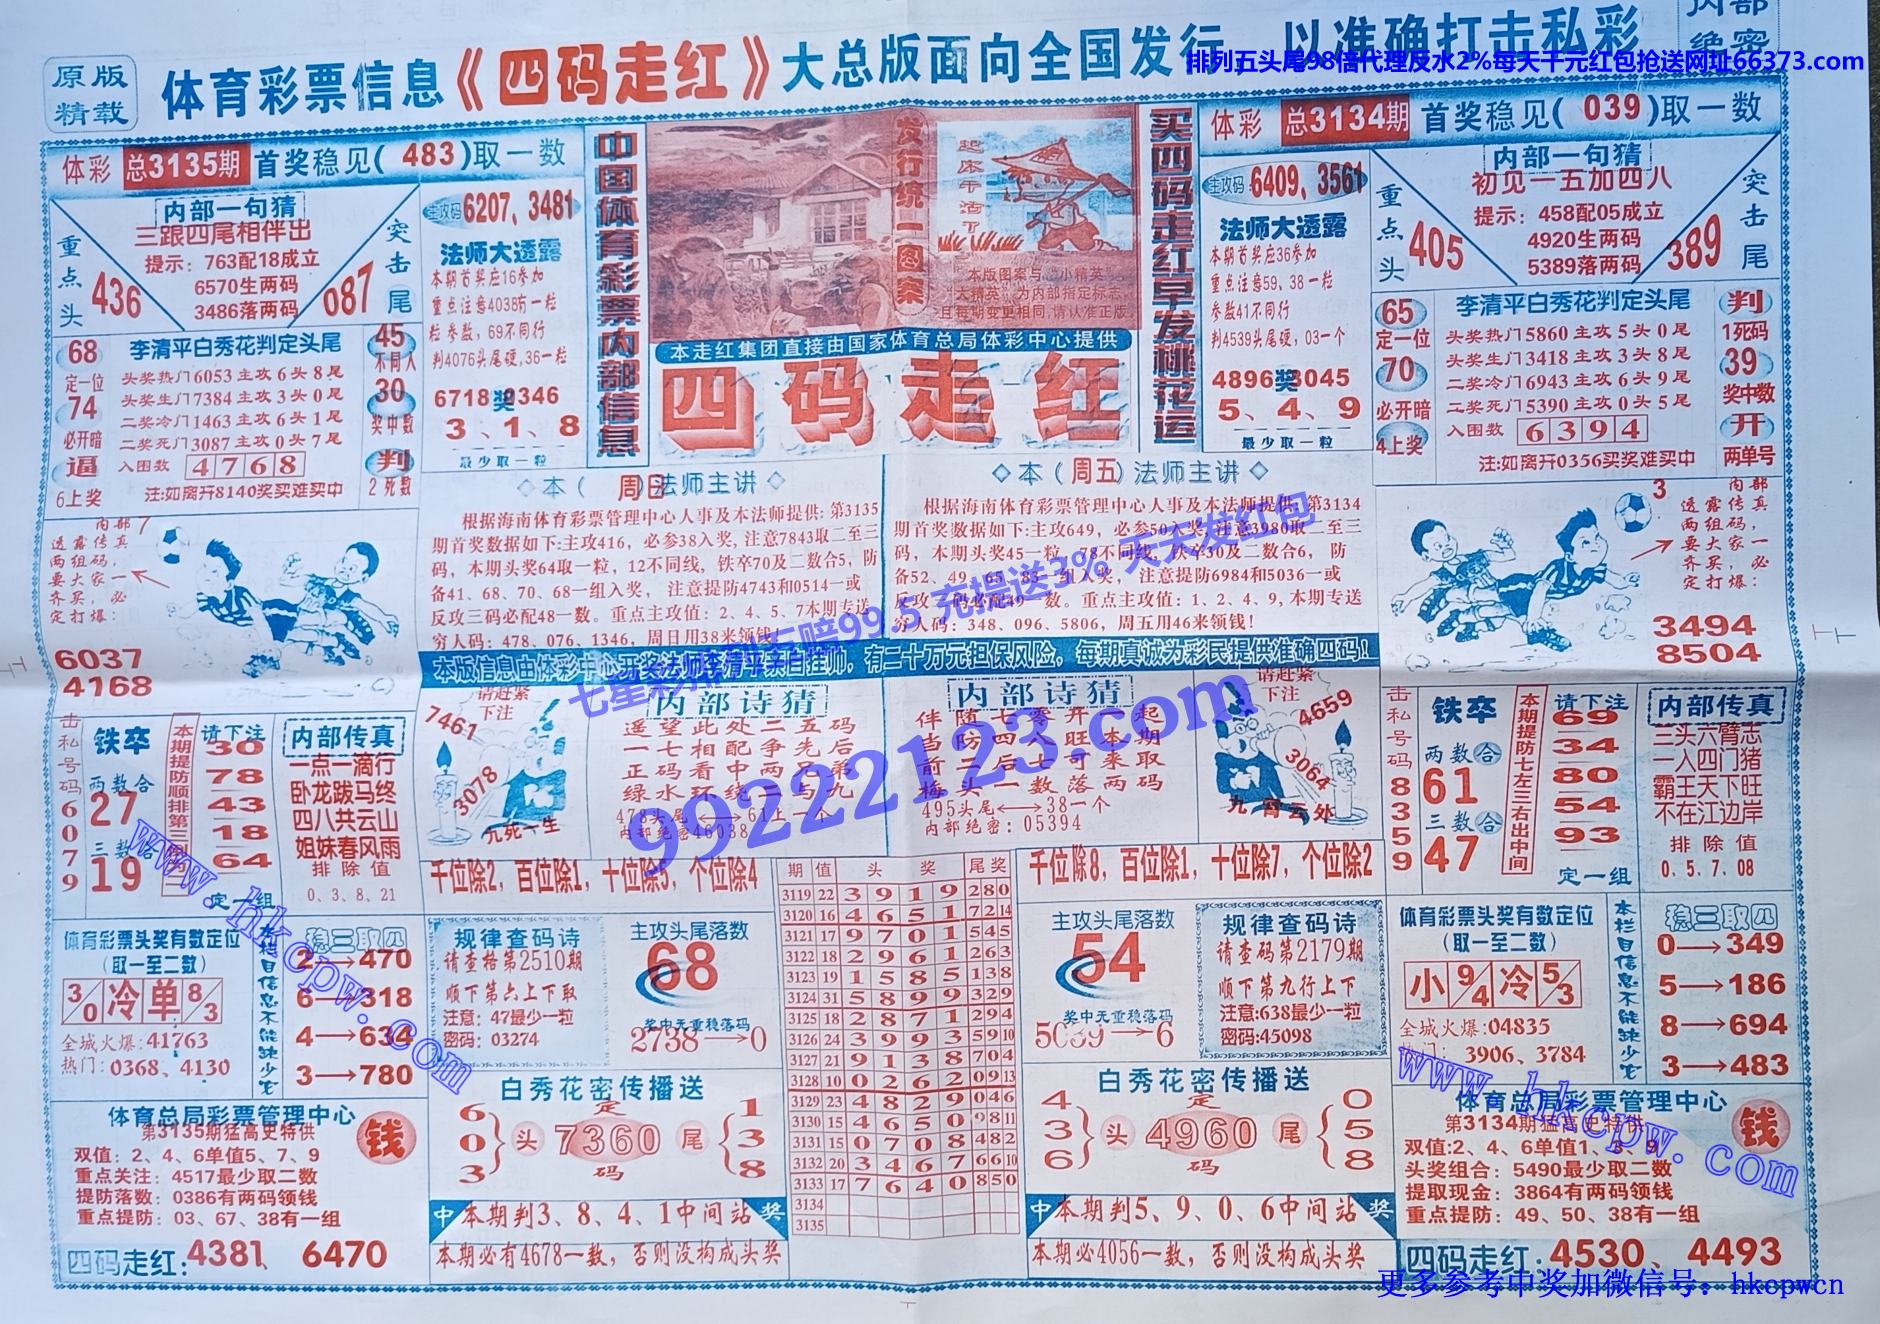 原版
精载
体育彩票信息《四码走红》大总版面向全国发行,以准确打击私彩
内部
绝密
排列五头尾98倍代理反水2%每天千元红包抢送网址66373.com
体彩 总3135期 首奖稳见(483)取一数
内部一句猜
三跟四尾相伴出
提示：763配18成立
6570生两码
3486落两码
重点头
436
突击尾
087
主攻码 6207、3481
法师大透露
本期首奖应16参加
重点注意4038有一粒
粒参数,69不同行
判4076头尾硬,36一粒
6718奖0346
3、1、8
最少取一粒
68
定一位
74
必开暗
逼
6上奖
李清平白秀花判定头尾
头奖热门6053主攻6头8尾
头奖生门7384主攻3头0尾
二奖冷门1463主攻6头1尾
二奖死门3087主攻0头7尾
入围数 4768
注:如离开8140奖买难买中
45
不同人
30
奖中数
判
2死数
中国体育彩票内部信息
发行统一图案
起床干活了
本版图案与“小精英”
“大精英”为内部指定标志,
且每期变更相同,请认准正版
本走红集团直接由国家体育总局体彩中心提供
四码走红
买四码走红早发桃花运
体彩 总3134期 首奖稳见(039)取一数
主攻码 6409、3561
法师大透露
本期首奖应36参加
重点注意59、38一粒
参数41不同行
判4539头尾硬,03一个
4896奖3045
5、4、9
最少取一粒
内部一句猜
初见一五加四八
提示：458配05成立
4920生两码
5389落两码
重点头
405
突击尾
389
65
定一位
70
必开暗
4上奖
李清平白秀花判定头尾
头奖热门5860主攻5头0尾
头奖生门3418主攻3头8尾
二奖冷门6943主攻6头9尾
二奖死门5390主攻0头5尾
入围数 6394
注:如离开0356买奖难买中
判
1死码
39
奖中数
开
两单号
◇本(周日)法师主讲◇
根据海南体育彩票管理中心人事及本法师提供:第3135
期首奖数据如下:主攻416，必参38入奖,注意7843取二至三
码，本期头奖64取一粒，12不同线，铁卒70及二数合5，防
备41、68、70、68一组入奖， 注意提防4743和0514一或
反攻三码必配48一数。重点主攻值：2、4、5、7本期专送
穷人码：478、076、1346，周日用38来领钱!
◇本(周五)法师主讲◇
根据海南体育彩票管理中心人事及本法师提供：第3134
期首奖数据如下:主攻649，必参50入奖,注意3980取二至三
码，本期头奖45一粒，78不同线，铁卒30及二数合6， 防
备52、49、65、83一组入奖， 注意提防6984和5036一或
反攻三码必配49一数。重点主攻值：1、2、4、9,本期专送
穷人码：348、096、5806，周五用46来领钱!
内部
透露传真
两组码，
要大家一
齐买，必
定打爆：
7
6037
4168
3
内部
透露传真
两组码，
要大家一
齐买，必
定打爆：
3494
8504
本版信息由体彩中心开奖法师李清平亲自挂帅，有二十万元担保风险，每期真诚为彩民提供准确四码！
七星彩排列五赔99.5 充提送3% 天天发红包
99222123.com
击私号码6079
铁卒
两数合
27
三数合
19
本期提防顺排第三码
请下注
30
78
43
18
64
定一组
内部传真
一点一滴行
卧龙跋马终
四八共云山
姐妹春风雨
排除值
0、3、8、21
请赶紧
下注
7461
3078
九死一生
内部诗猜
遥望此处二五码
一七相配争先后
正码看中两兄弟
绿水环绕二与九
478头尾⟷61上一个
内部绝密46038
内部诗猜
伴随七零开一起
当防四人旺本期
前二后七可来取
梅头一数落两码
495头尾⟷38一个
内部绝密：05394
请赶紧
下注
4659
3064
九霄云外
击私号码8359
铁卒
两数合
61
三数合
47
本期提防七左三右出中间
请下注
69
34
80
54
93
定一组
内部传真
三头六臂志
一人四门猪
霸王天下旺
不在江边岸
排除值
0、5、7、08
千位除2，百位除1，十位除5，个位除4
千位除8，百位除1，十位除7，个位除2
体育彩票头奖有数定位
(取一至二数)
3/0 冷 单 8/3
全城火爆:41763
热门：0368、4130
本栏目信息不能缺少它
稳三取四
2→470
6→318
4→634
3→780
规律查码诗
请查格第2510期
顺下第六上下取
注意：47最少一粒
密码：03274
主攻头尾落数
68
奖中无重稳落码
2738→0
期 值 头 奖 尾奖
3119 22 3 9 1 9 280
3120 16 4 6 5 1 72 14
3121 17 9 7 0 1 545
3122 18 2 9 6 1 263
3123 19 1 5 8 5 138
3124 31 5 8 9 9 329
3125 18 2 8 7 1 294
3126 24 3 9 9 3 59 10
3127 21 9 1 3 8 704
3128 10 0 2 6 2 09 13
3129 23 4 8 2 9 046
3130 15 4 6 5 0 98 11
3131 15 0 7 0 8 482
3132 20 3 4 6 7 66 10
3133 17 7 6 4 0 850
3134
3135
主攻头尾落数
54
奖中无重稳落码
5039→6
规律查码诗
请查码第2179期
顺下第九行上下
注意:638最少一粒
密码:45098
体育彩票头奖有数定位
(取一至二数)
小 9/4 冷 5/3
全城火爆:04835
热门： 3906、3784
本栏目信息不能缺少它
稳三取四
0→349
5→186
8→694
3→483
白秀花密传播送
6 0 3
定
头 7360 尾
码
1 3 8
白秀花密传播送
4 3 6
定
头 4960 尾
码
0 5 8
体育总局彩票管理中心
第3135期猛高史特供
双值：2、4、6单值5、7、9
重点关注：4517最少取二数
提防落数：0386有两码领钱
重点提防：03、67、38有一组
钱
四码走红:4381、6470
中 本期判3、8、4、1中间站 奖
本期必有4678一数，否则没构成头奖
中 本期判5、9、0、6中间站 奖
本期必4056一数，否则没构成头奖
体育总局彩票管理中心
第3134期猛高史特供
双值：2、4、6单值1、3、9
头奖组合：5490最少取二数
提取现金：3864有两码领钱
重点提防：49、50、38有一组
钱
四码走红:4530、4493
www.hkopw.com
www.hkopw.com
更多参考中奖加微信号：hkopwcn